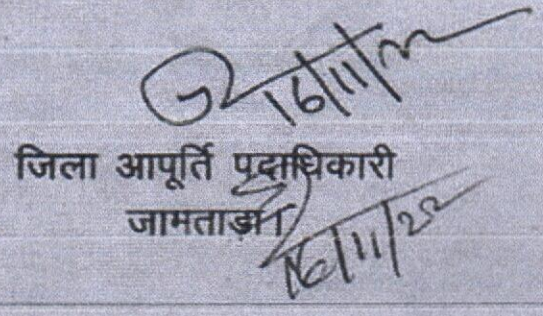 16/11/22
जिला आपूर्ति पदाधिकारी
जामताड़ा।
16/11/22